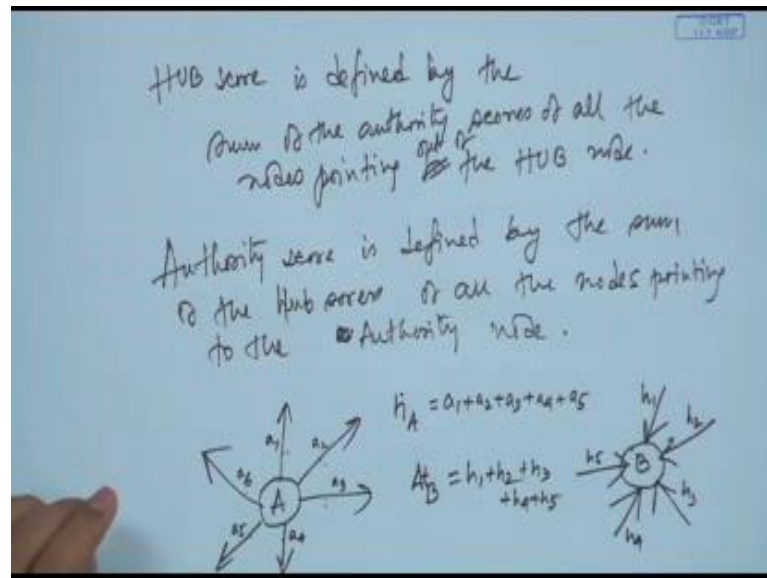 HUB score is defined by the
sum of the authority scores of all the
nodes pointing out of the HUB node.
Authority score is defined by the sum
of the Hub scores of all the nodes pointing
to the Authority node.
H_A = a1+a2+a3+a4+a5
A_B = h1+h2+h3
+h4+h5
a1
a2
a3
a4
a5
a6
A
h1
h2
h3
h4
h5
B